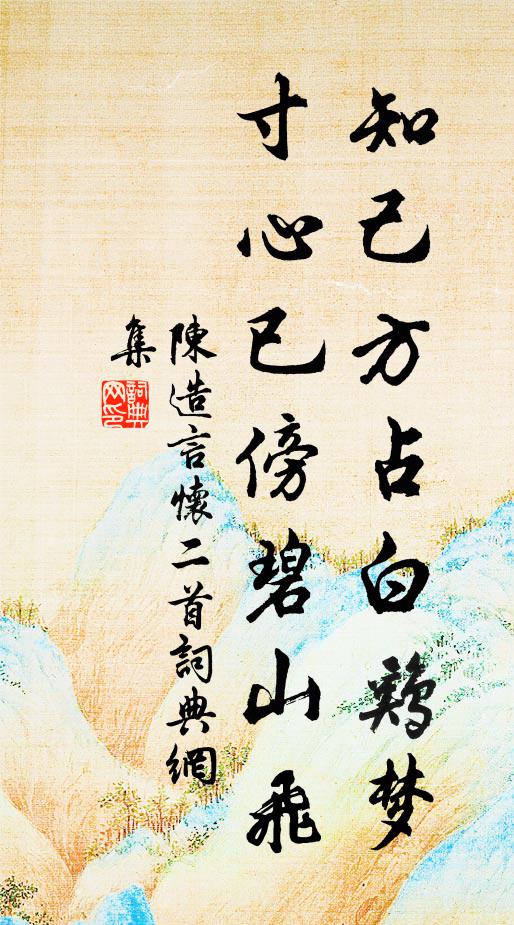 知己方占白鷄梦
寸心已傍碧山飛
陳造言懷二首詞典網
集
詞典網印